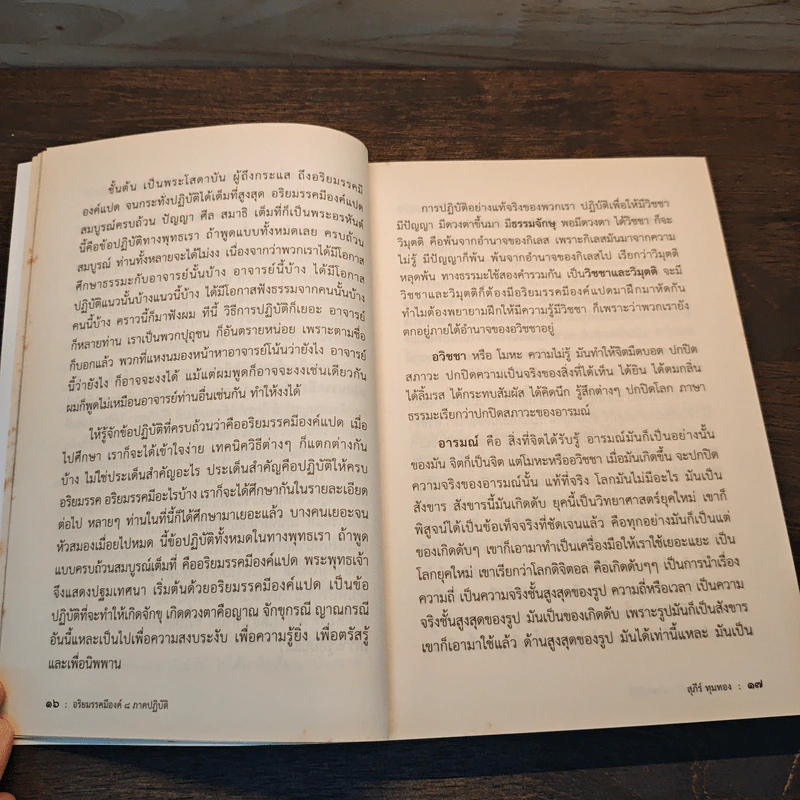 ชั้นต้น เป็นพระโสดาบัน ผู้ถึงกระแส ถึงอริยมรรคมี
องค์แปด จนกระทั่งปฏิบัติได้เต็มที่สูงสุด อริยมรรคมีองค์แปด
สมบูรณ์ครบถ้วน ปัญญา ศีล สมาธิ เต็มที่ก็เป็นพระอรหันต์
นี้คือข้อปฏิบัติทางพุทธเรา ถ้าพูดแบบทั้งหมดเลย ครบถ้วน
สมบูรณ์ ท่านทั้งหลายจะได้ไม่งง เนื่องจากว่าพวกเราได้มีโอกาส
ศึกษาธรรมะกับอาจารย์นั้นบ้าง อาจารย์นี้บ้าง ได้มีโอกาส
ปฏิบัติแนวนั้นบ้างแนวนี้บ้าง ได้มีโอกาสฟังธรรมจากคนนั้นบ้าง
คนนี้บ้าง คราวนี้ก็มาฟังผม ทีนี้ วิธีการปฏิบัติก็เยอะ อาจารย์
ก็หลายท่าน เราเป็นพวกปุถุชน ก็อันตรายหน่อย เพราะตามชื่อ
ก็บอกแล้ว พวกที่แหงนมองหน้าหาอาจารย์โน้นว่ายังไง อาจารย์
นี้ว่ายังไง ก็อาจจะงงได้ แม้แต่ผมพูดก็อาจจะงงเช่นเดียวกัน
ผมก็พูดไม่เหมือนอาจารย์ท่านอื่นเช่นกัน ทำให้งงได้
ให้รู้จักข้อปฏิบัติที่ครบถ้วนว่าคืออริยมรรคมีองค์แปด เมื่อ
ไปศึกษา เราก็จะได้เข้าใจง่าย เทคนิควิธีต่างๆ ก็แตกต่างกัน
บ้าง ไม่ใช่ประเด็นสำคัญอะไร ประเด็นสำคัญคือปฏิบัติให้ครบ
อริยมรรค อริยมรรคมีอะไรบ้าง เราก็จะได้ศึกษากันในรายละเอียด
ต่อไป หลายๆ ท่านในที่นี้ก็ได้ศึกษามาเยอะแล้ว บางคนเยอะจน
หัวสมองเมื่อยไปหมด นี้ข้อปฏิบัติทั้งหมดในทางพุทธเรา ถ้าพูด
แบบครบถ้วนสมบูรณ์เต็มที่ คืออริยมรรคมีองค์แปด พระพุทธเจ้า
จึงแสดงปฐมเทศนา เริ่มต้นด้วยอริยมรรคมีองค์แปด เป็นข้อ
ปฏิบัติที่จะทำให้เกิดจักขุ เกิดดวงตาคือญาณ จักขุกรณี ญาณกรณี
อันนี้แหละเป็นไปเพื่อความสงบระงับ เพื่อความรู้ยิ่ง เพื่อตรัสรู้
และเพื่อนิพพาน
๑๖ : อริยมรรคมีองค์ ๘ ภาคปฏิบัติ
การปฏิบัติอย่างแท้จริงของพวกเรา ปฏิบัติเพื่อให้มีวิชชา
มีปัญญา มีดวงตาขึ้นมา มีธรรมจักษุ พอมีดวงตา ได้วิชชา ก็จะ
วิมุตติ คือพ้นจากอำนาจของกิเลส เพราะกิเลสมันมาจากความ
ไม่รู้ มีปัญญาก็พ้น พ้นจากอำนาจของกิเลสไป เรียกว่าวิมุตติ
หลุดพ้น ทางธรรมะใช้สองคำรวมกัน เป็นวิชชาและวิมุตติ จะมี
วิชชาและวิมุตติก็ต้องมีอริยมรรคมีองค์แปดมาฝึกมาหัดกัน
ทำไมต้องพยายามฝึกให้มีความรู้มีวิชชา ก็เพราะว่าพวกเรายัง
ตกอยู่ภายใต้อำนาจของอวิชชาอยู่
อวิชชา หรือ โมหะ ความไม่รู้ มันทำให้จิตมืดบอด ปกปิด
สภาวะ ปกปิดความเป็นจริงของสิ่งที่ได้เห็น ได้ยิน ได้ดมกลิ่น
ได้ลิ้มรส ได้กระทบสัมผัส ได้คิดนึก รู้สึกต่างๆ ปกปิดโลก ภาษา
ธรรมะเรียกว่าปกปิดสภาวะของอารมณ์
อารมณ์ คือ สิ่งที่จิตได้รับรู้ อารมณ์มันก็เป็นอย่างนั้น
ของมัน จิตก็เป็นจิต แต่โมหะหรืออวิชชา เมื่อมันเกิดขึ้น จะปกปิด
ความจริงของอารมณ์นั้น แท้ที่จริง โลกมันไม่มีอะไร มันเป็น
สังขาร สังขารนี้มันเกิดดับ ยุคนี้เป็นวิทยาศาสตร์ยุคใหม่ เขาก็
พิสูจน์ได้เป็นข้อเท็จจริงที่ชัดเจนแล้ว คือทุกอย่างมันก็เป็นแต่
ของเกิดดับๆ เขาก็เอามาทำเป็นเครื่องมือให้เราใช้เยอะแยะ เป็น
โลกยุคใหม่ เขาเรียกว่าโลกดิจิตอล คือเกิดดับๆๆ เป็นการนำเรื่อง
ความถี่ เป็นความจริงชั้นสูงสุดของรูป ความถี่หรือเวลา เป็นความ
จริงชั้นสูงสุดของรูป มันเป็นของเกิดดับ เพราะรูปมันก็เป็นสังขาร
เขาก็เอามาใช้แล้ว ด้านสูงสุดของรูป มันได้เท่านี้แหละ มันเป็น
สุภีร์ ทุมทอง : ๑๗